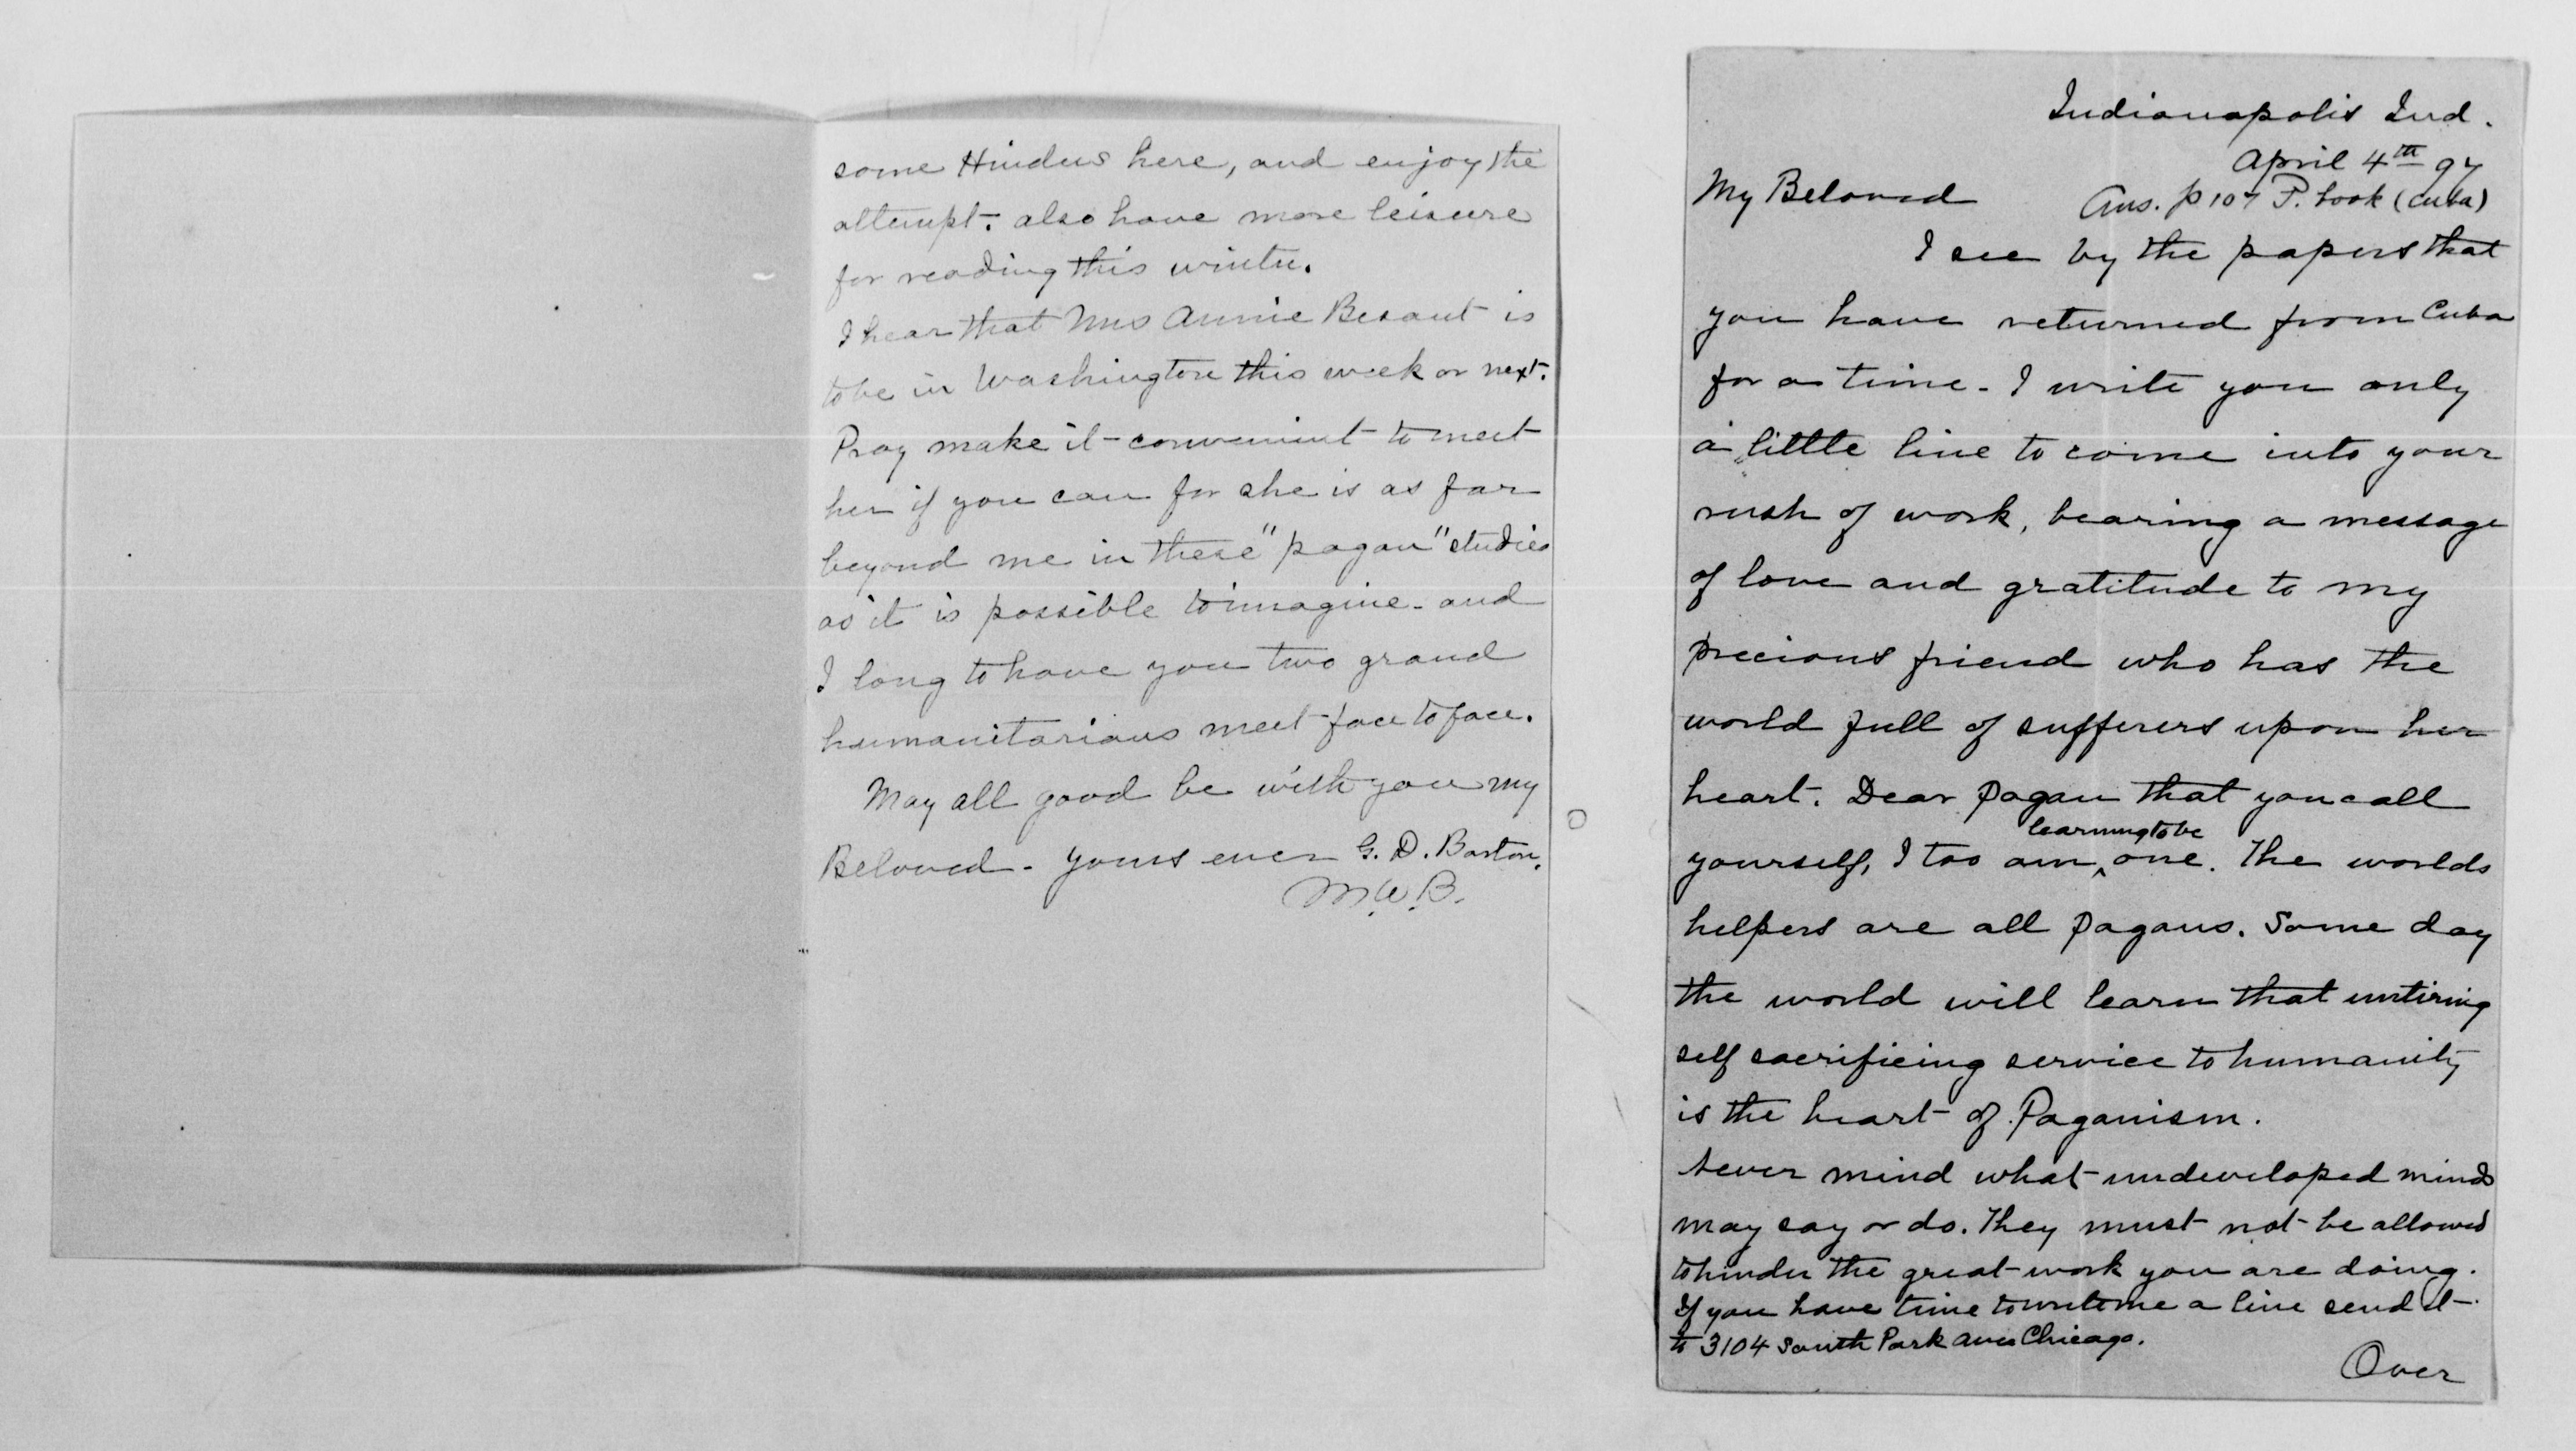 some Hindus here, and enjoy the
attempt. also have more leisure
for reading this winter.
I hear that Mrs Annie Besant is
to be in Washington this week or next.
Pray make it convenient to meet
her if you can for she is as far
beyond me in these "pagan" studies
as it is possible to imagine - and
I long to have you two grand
humanitarians meet face to face.
May all good be with you my
Beloved - yours ever G. D. Barton.
M.W.B.
Indianapolis Ind.
April 4th 97
My Beloved
Ans. p 107 P. book (Cuba)
I see by the papers that
you have returned from Cuba
for a time - I write you only
a little line to come into your
rush of work, bearing a message
of love and gratitude to my
precious friend who has the
world full of sufferers upon her
heart. Dear pagan that you call
learning to be
yourself, I too am ‸ one. The worlds
helpers are all pagans. Some day
the world will learn that untiring
self sacrificing service to humanity
is the heart of Paganism.
Never mind what undeveloped minds
may say or do. They must not be allowed
to hinder the great work you are doing.
If you have time to write me a line send it
to 3104 South Park Ave Chicago.
Over